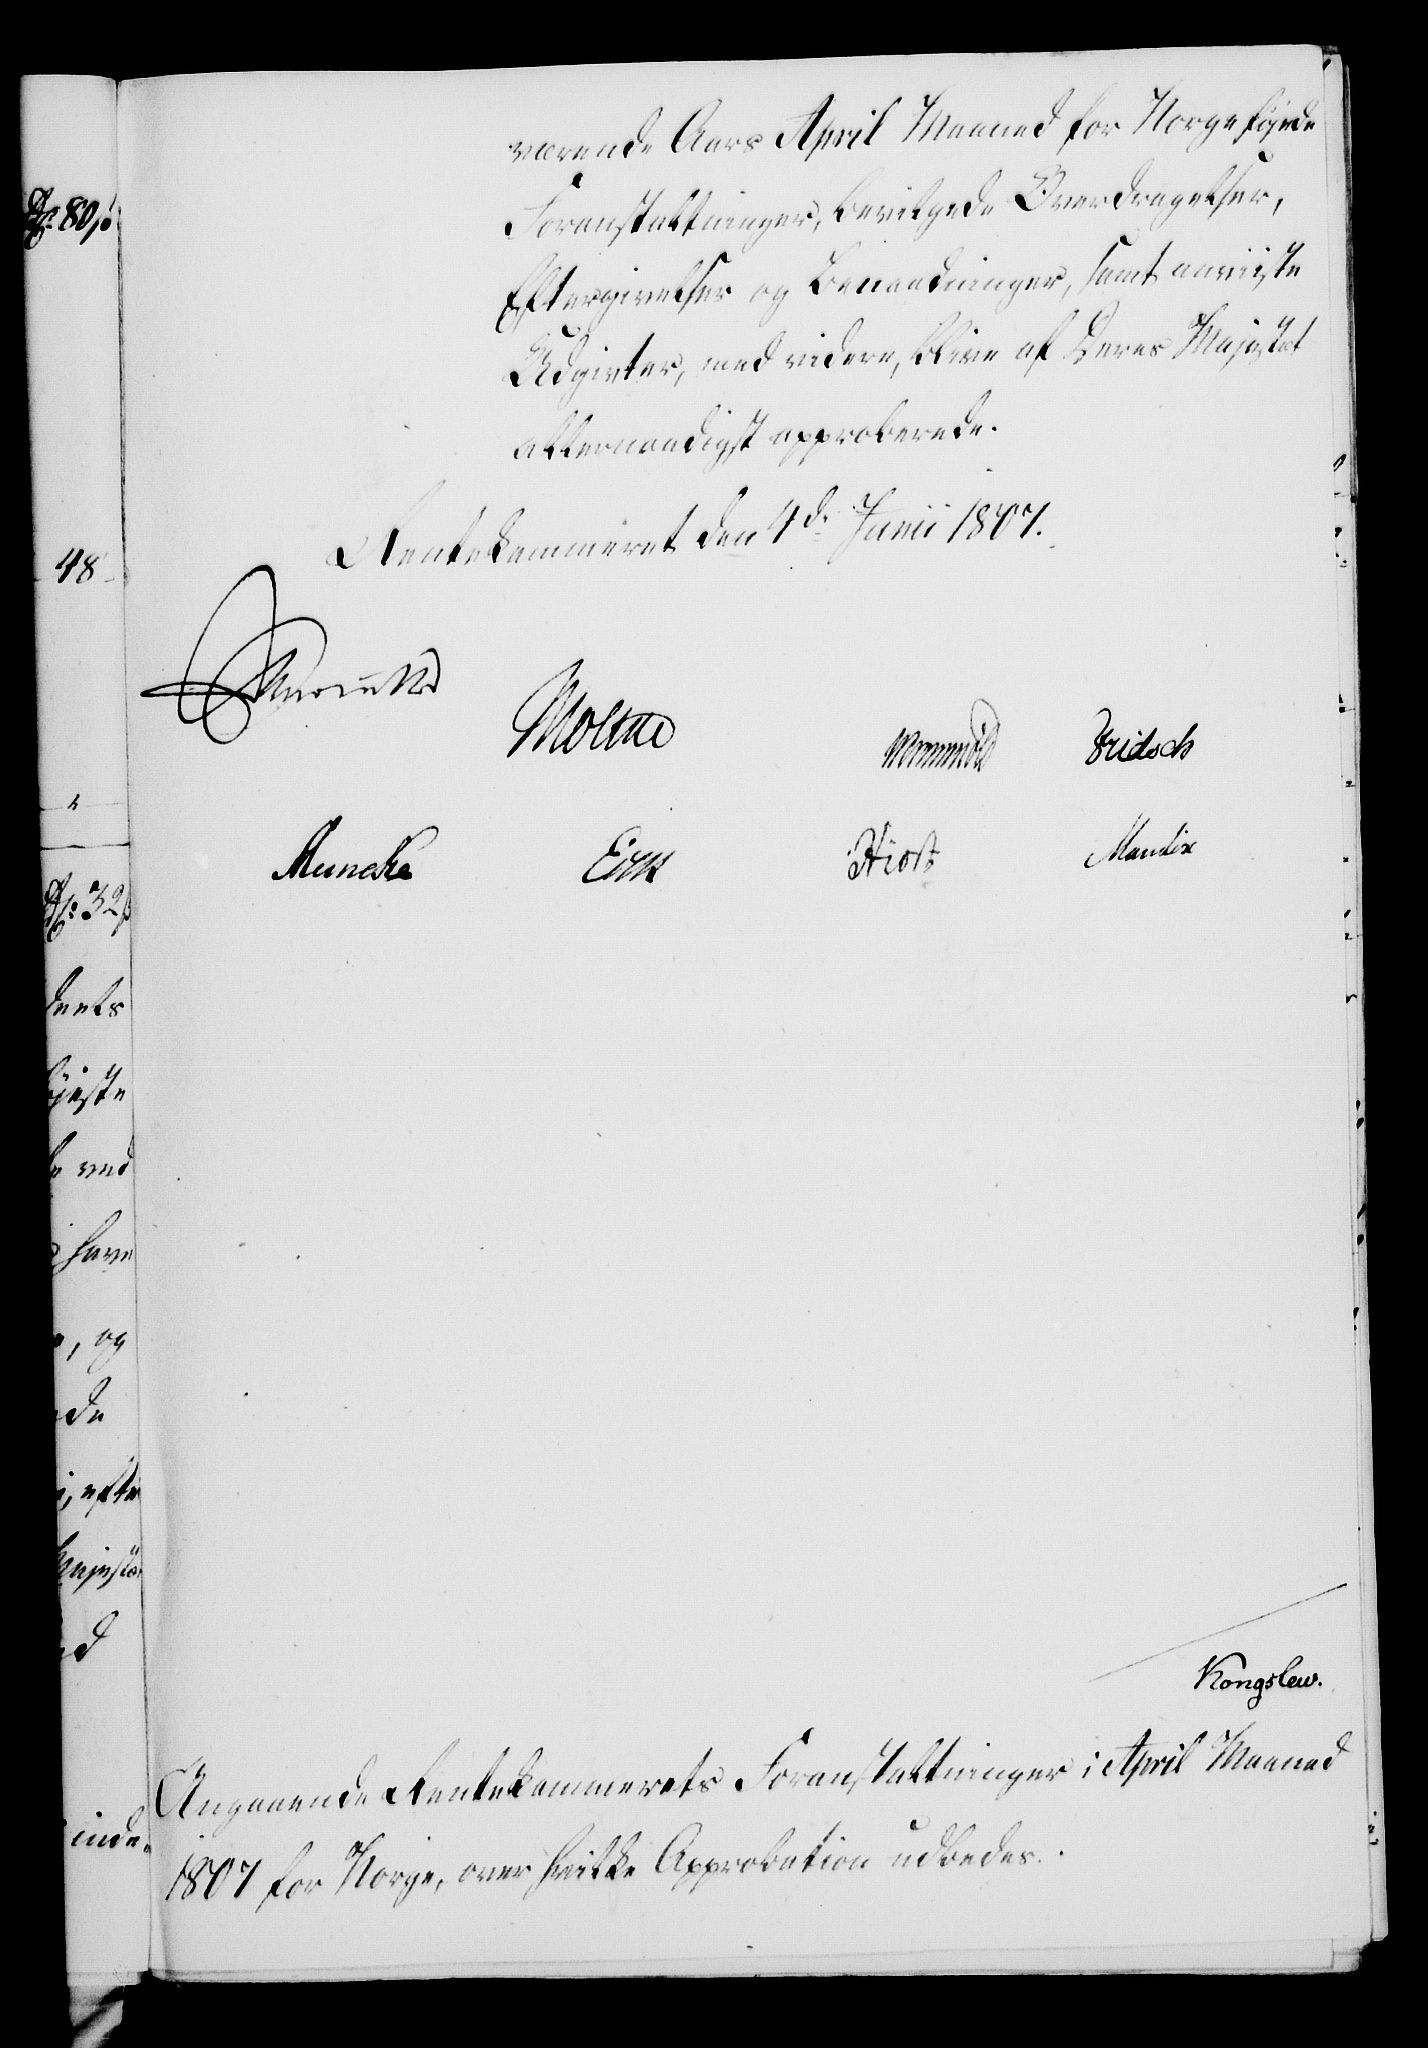 værende Aars April Maaned for Norge føiede
Foranstaltninger, bevilgede Overdragelser,
Eftergivelser og Benaadninger, samt anviiste
Udgivter, med videre, blive af Deres Majestæt
allernaadigst approberede.
Rentekammeret den 4de Junii 1807.
Moltke
Wormskiold Fridsch
Muncke Eick Hiort Mandix
Kongslew.
Angaaende Rentekammerets Foranstaltninger i April Maaned
1807 for Norge, over hvilke Approbation udbedes.
80
48
32
ved
have
, og
efter
Majestæt
inde-